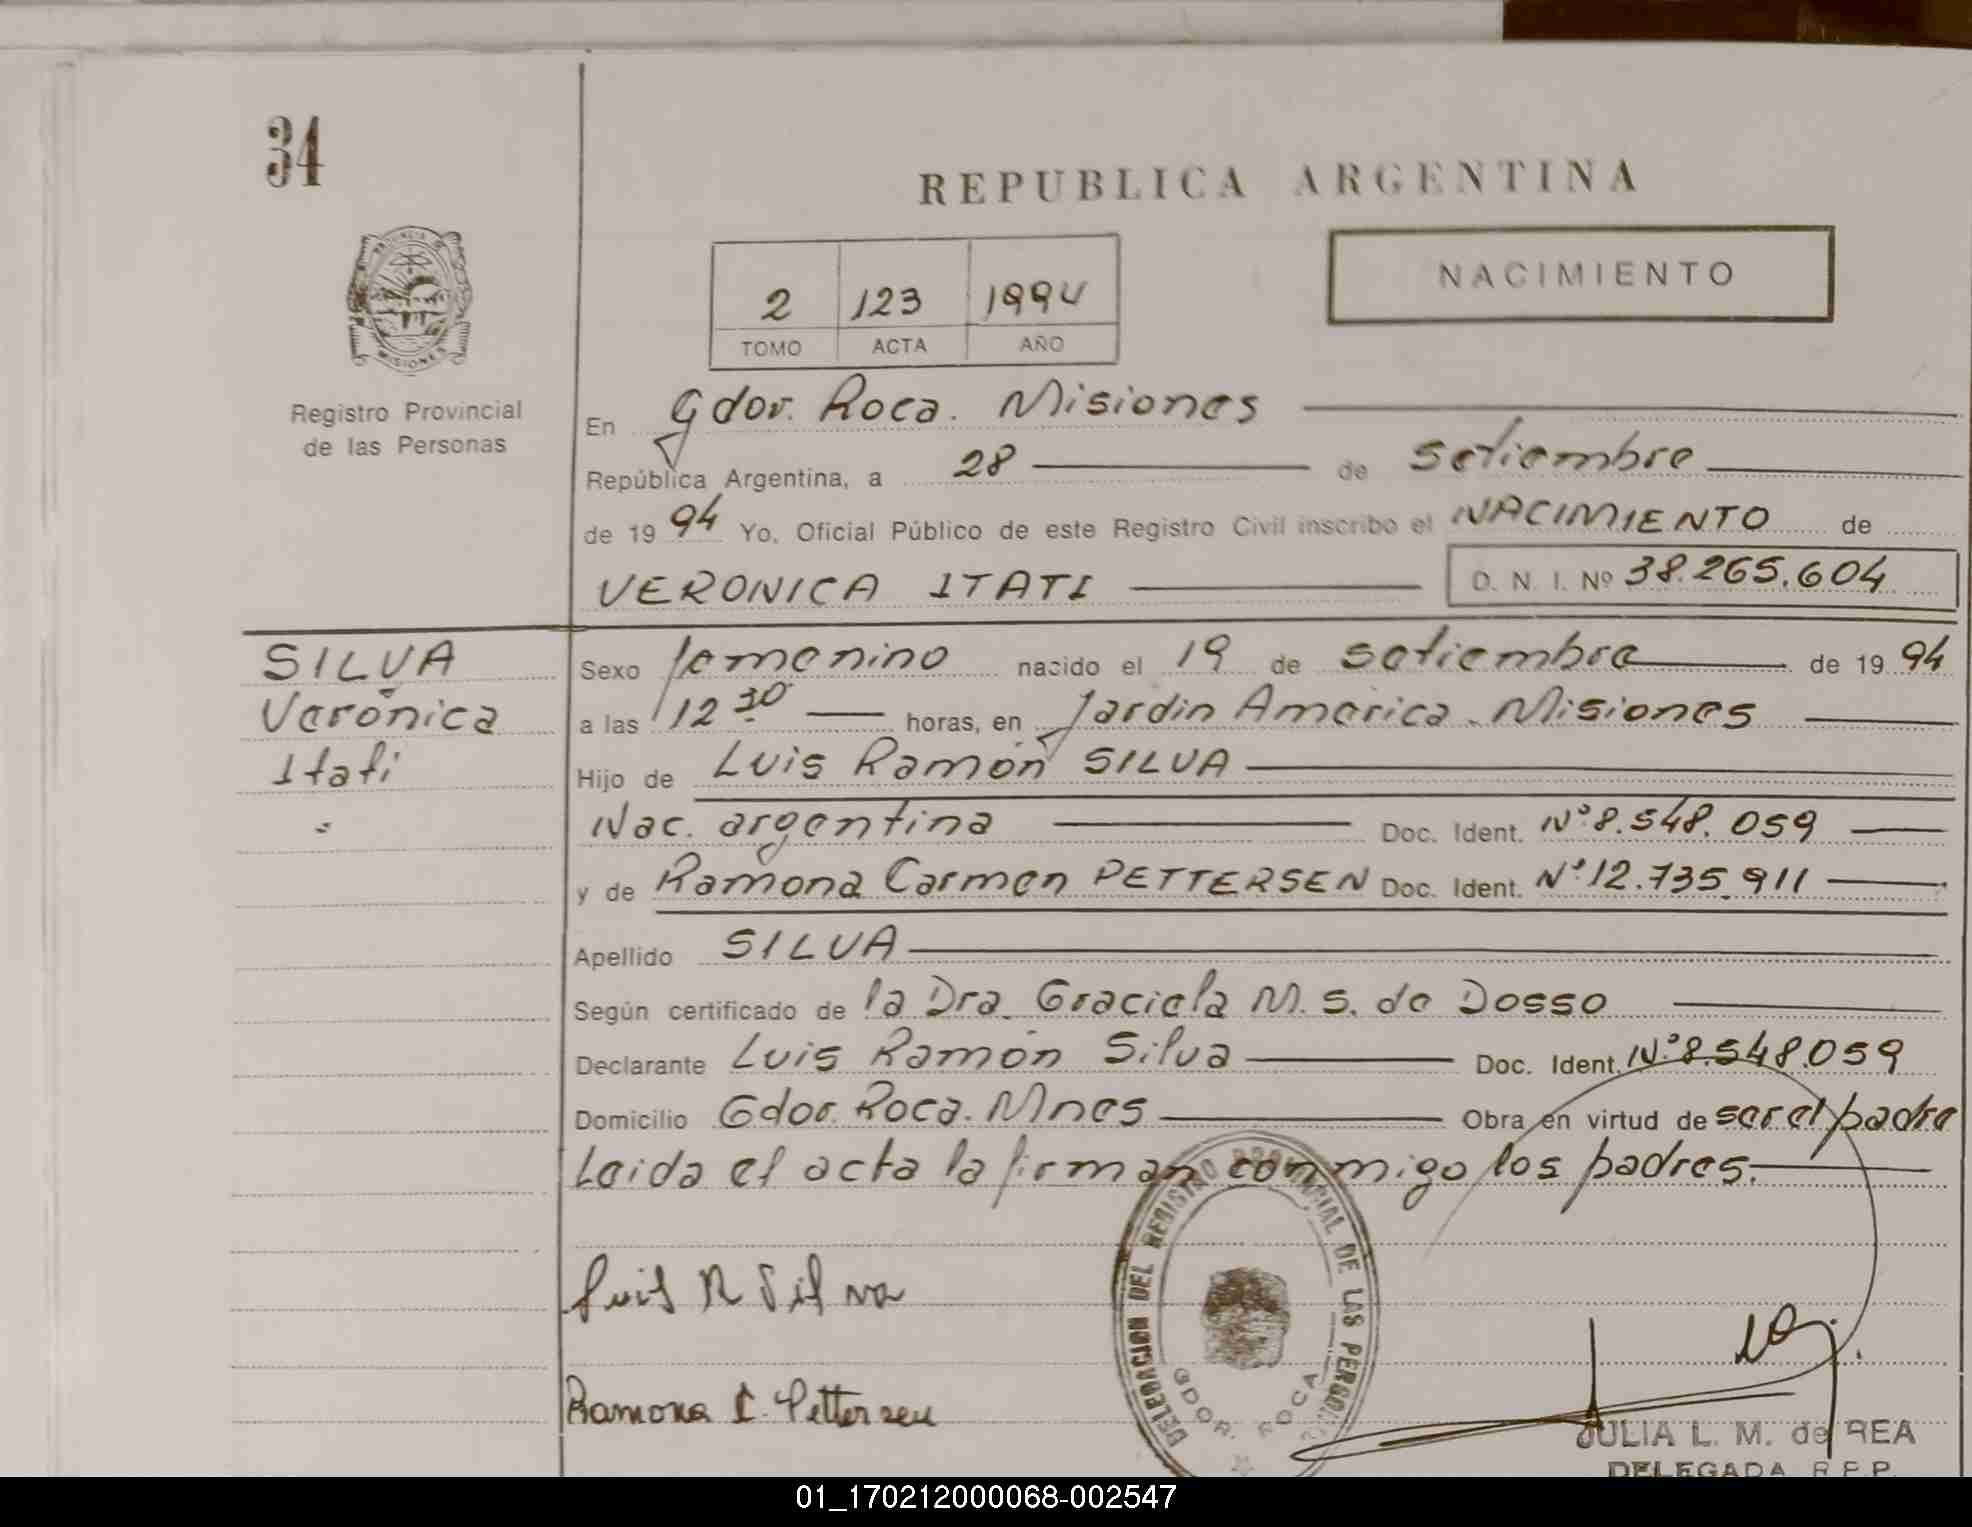 34
REPUBLICA ARGENTINA
PROVINCIA DE
MISIONES
NACIMIENTO
2 123 1994
TOMO ACTA AÑO
Registro Provincial
de las Personas
En Gdor. Roca. Misiones
República Argentina, a 28 de setiembre
de 1994 Yo, Oficial Público de este Registro Civil inscribo el NACIMIENTO de
VERONICA ITATI D. N. I. Nº 38.265.604
SILVA
Verónica
Itati
Sexo femenino nacido el 19 de setiembre de 1994
a las 12 30 horas, en Jardin America. Misiones
Hijo de Luis Ramón SILVA
Nac. argentina Doc. Ident. Nº 8.548.059
y de Ramona Carmen PETTERSEN Doc. Ident. Nº 12.735.911
Apellido SILVA
Según certificado de la Dra. Graciela M. S. de Dosso
Declarante Luis Ramón Silva Doc. Ident. Nº 8.548.059
Domicilio Gdor. Roca. Mnes Obra en virtud de ser el padre
Leida el acta la firman conmigo los padres.
DELEGACION DEL REGISTRO PROVINCIAL DE LAS PERSO
GDOR. ROCA
Luis R Silva
Ramona C. Pettersen
JULIA L. M. de REA
DELEGADA R.P.P.
01_170212000068-002547